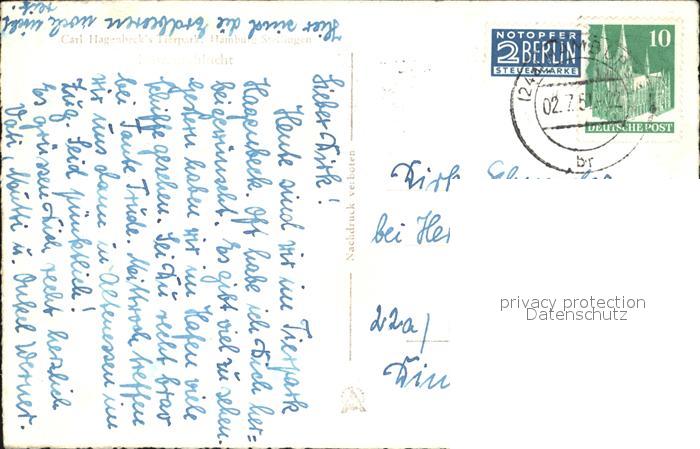 Hier sind die Erdbeeren noch nicht
reif.
Carl Hagenbeck's Tierpark, Hamburg-Stellingen
Lieber Dirk!
Heute sind wir im Tierpark
Hagenbeck. Oft habe ich Dich her=
beigewünscht. Es gibt viel zu sehen.
Gestern haben wir im Hafen viele
Schiffe gesehen. Sei Du recht brav
bei Tante Trude. Mittwoch treffen
wir uns dann in Altenessen im
Zug. Seid pünktlich!
Es grüssen Dich recht herzlich
Vati, Mutti u. Onkel Werner.
Nachdruck verboten
NOTOPFER
2 BERLIN
STEUERMARKE
10
DEUTSCHE POST
02.7.5
br
Dirk
bei Her
22a/
Din
privacy protection
Datenschutz